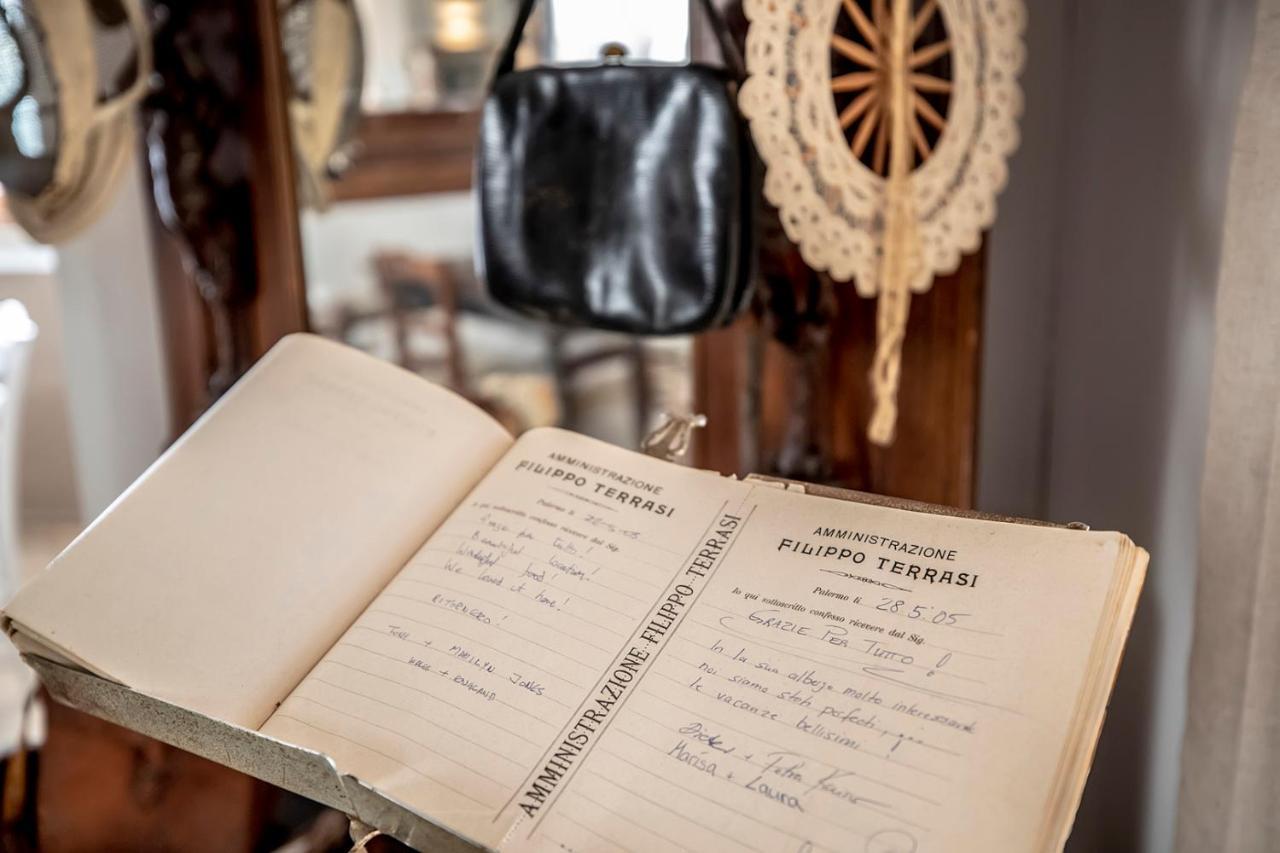 AMMINISTRAZIONE
FILIPPO TERRASI
Palermo li
Io qui sottoscritto confesso ricevere dal Sig.
tutto!
Beautiful location!
Wonderful food!
We loved it here!
RITORNERO!
TONI + MARILYN JONES
WALES + ENGLAND
AMMINISTRAZIONE FILIPPO TERRASI
AMMINISTRAZIONE
FILIPPO TERRASI
Palermo li 28.5.05
Io qui sottoscritto confesso ricevere dal Sig.
GRAZIE PER TUTTO!
In la sua albergo molto interessante
noi siamo stati perfecti,
le vacanze bellisimi!
+ Petra
Marisa + Laura